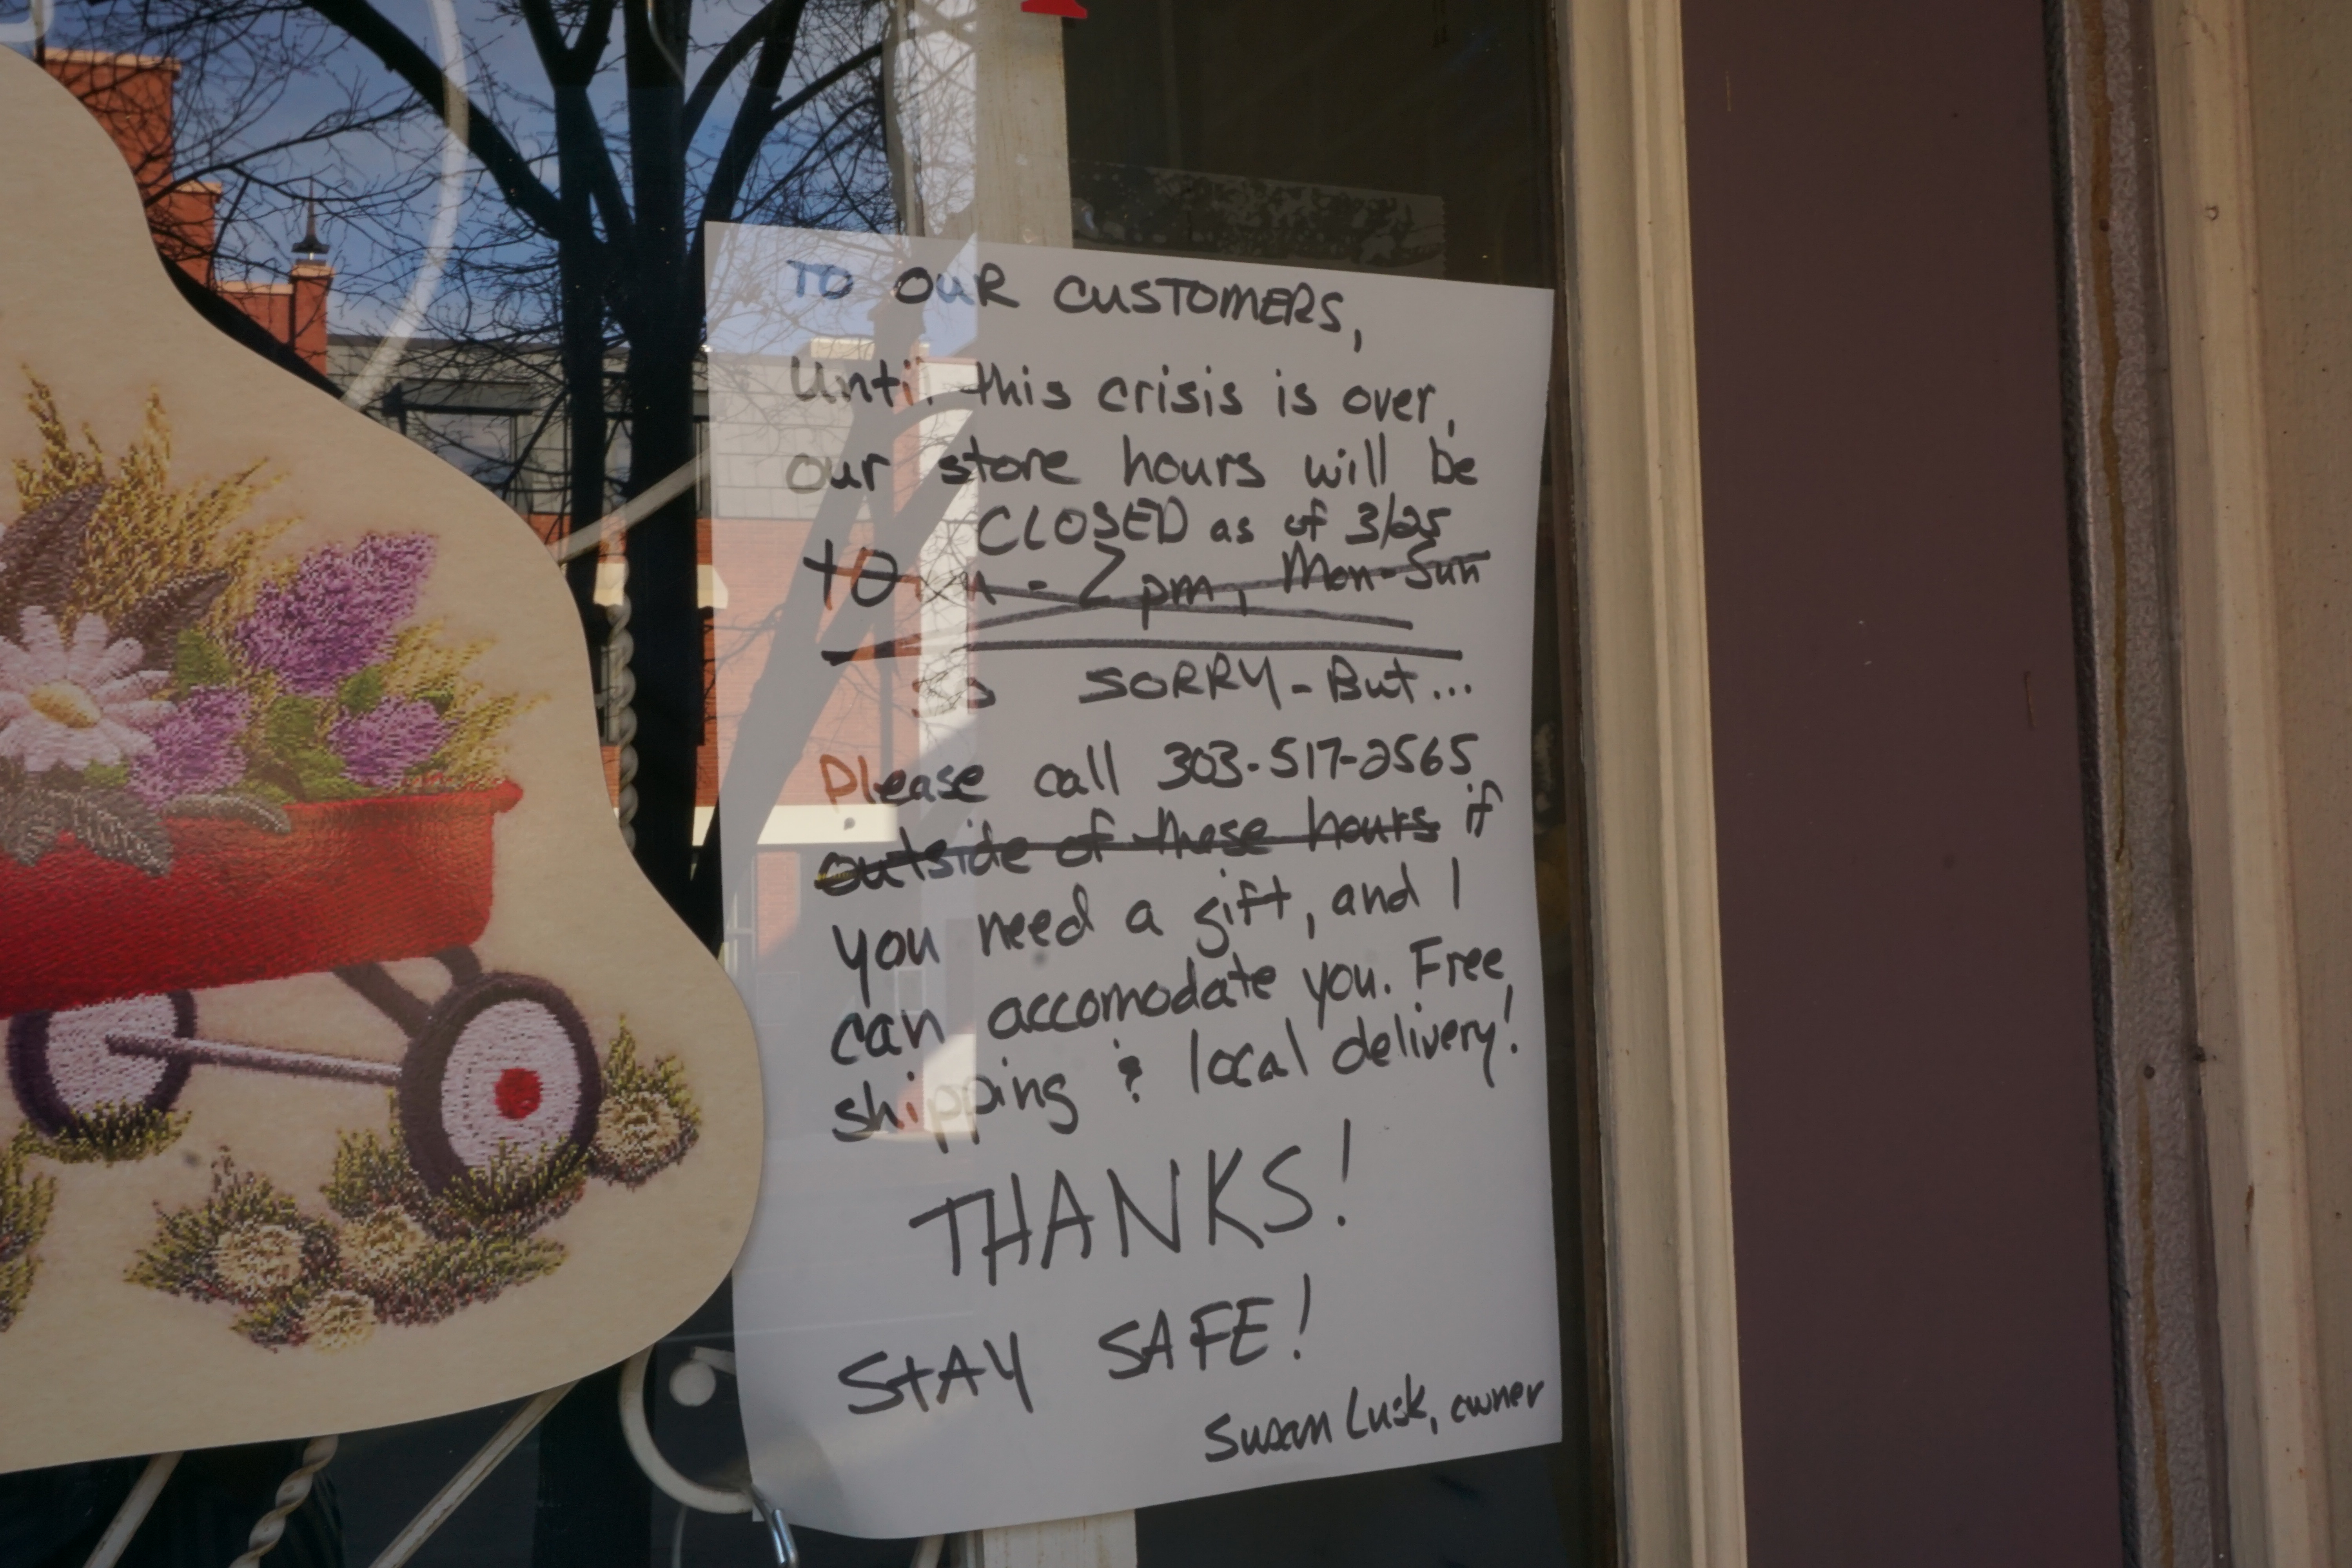 TO OUR CUSTOMERS,
Until this crisis is over,
our store hours will be
CLOSED as of 3/25
10 - 2pm, Mon-Sun
SO SORRY - But...
Please call 303-517-2565
outside of these hours if
you need a gift, and I
can accomodate you. Free
shipping & local delivery!
THANKS!
STAY SAFE!
Susan Lusk, owner